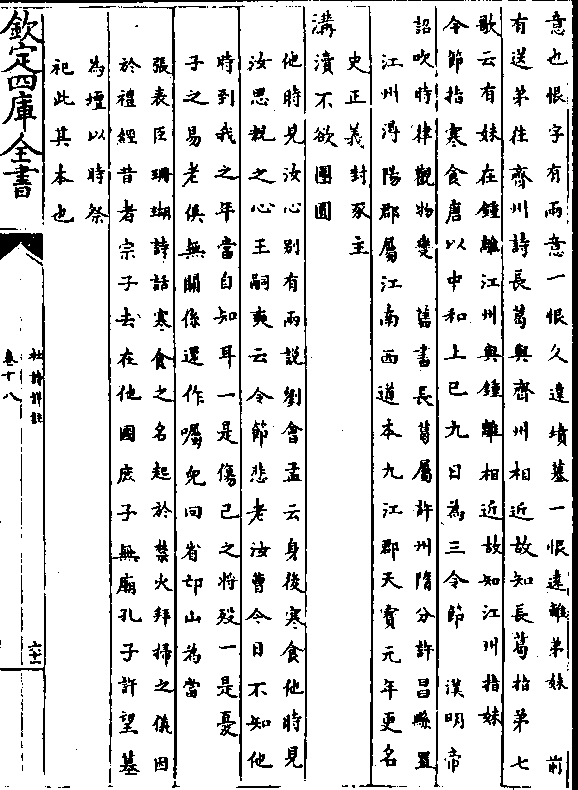 意也恨字有兩意一恨久違墳墓一恨遠離弟妹　前
有送弟往齊州詩長葛與齊州相近故知長葛指弟七
歌云有妹在鍾離江州與鍾離相近故知江州指妹
令節指寒食唐以中和上巳九日為三令節　漢明帝
詔吹時律觀物變　舊書長葛屬許州隋分許昌縣置
江州潯陽郡屬江南西道本九江郡天寶元年更名
史正義封豕主
溝瀆不欲團圓
他時見汝心别有兩説劉會孟云身後寒食他時見
汝思親之心王嗣奭云令節悲老汝曹今日不知他
時到我之年當自知耳一是傷已之將殁一是憂
子之易老俱無關係還作囑兒囘省邙山為當
張表臣珊瑚詩話寒食之名起於禁火拜掃之儀因
於禮經昔者宗子去在他國庶子無廟孔子許望墓
為壇以時祭
祀此其本也
欽定四庫全書
杜詩詳註
卷十八
六十二